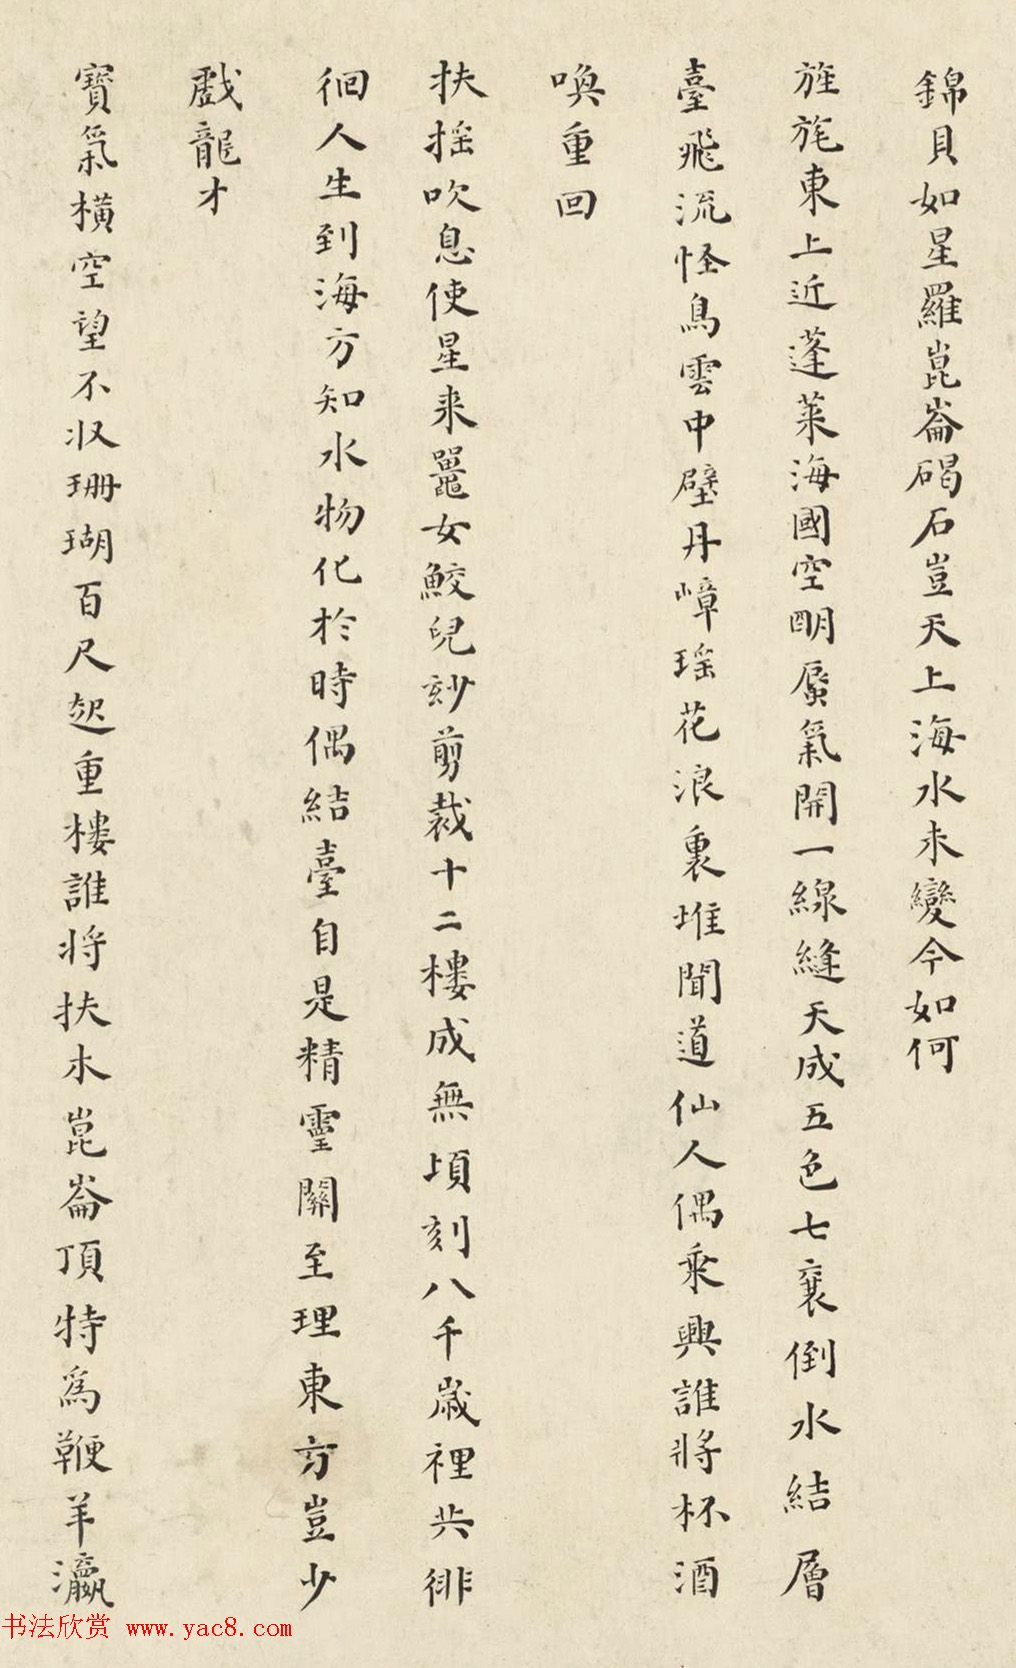 錦貝如星羅崑崙碣石豈天上海水未變今如何
旌旄東上近蓬萊海國空明蜃氣開一線縫天成五色七襄倒水結層
臺飛流怪鳥雲中壁丹嶂瑤花浪裏堆聞道仙人偶乘興誰將杯酒
喚重回
扶搖吹息使星来鼉女鮫兒妙剪裁十二樓成無頃刻八千歲裡共徘
徊人生到海方知水物化於時偶結臺自是精靈關至理東方豈少
戲龍才
寶氣橫空望不収珊瑚百尺起重樓誰將扶木崑崙頂特為鞭羊瀛
书法欣赏 www.yac8.com